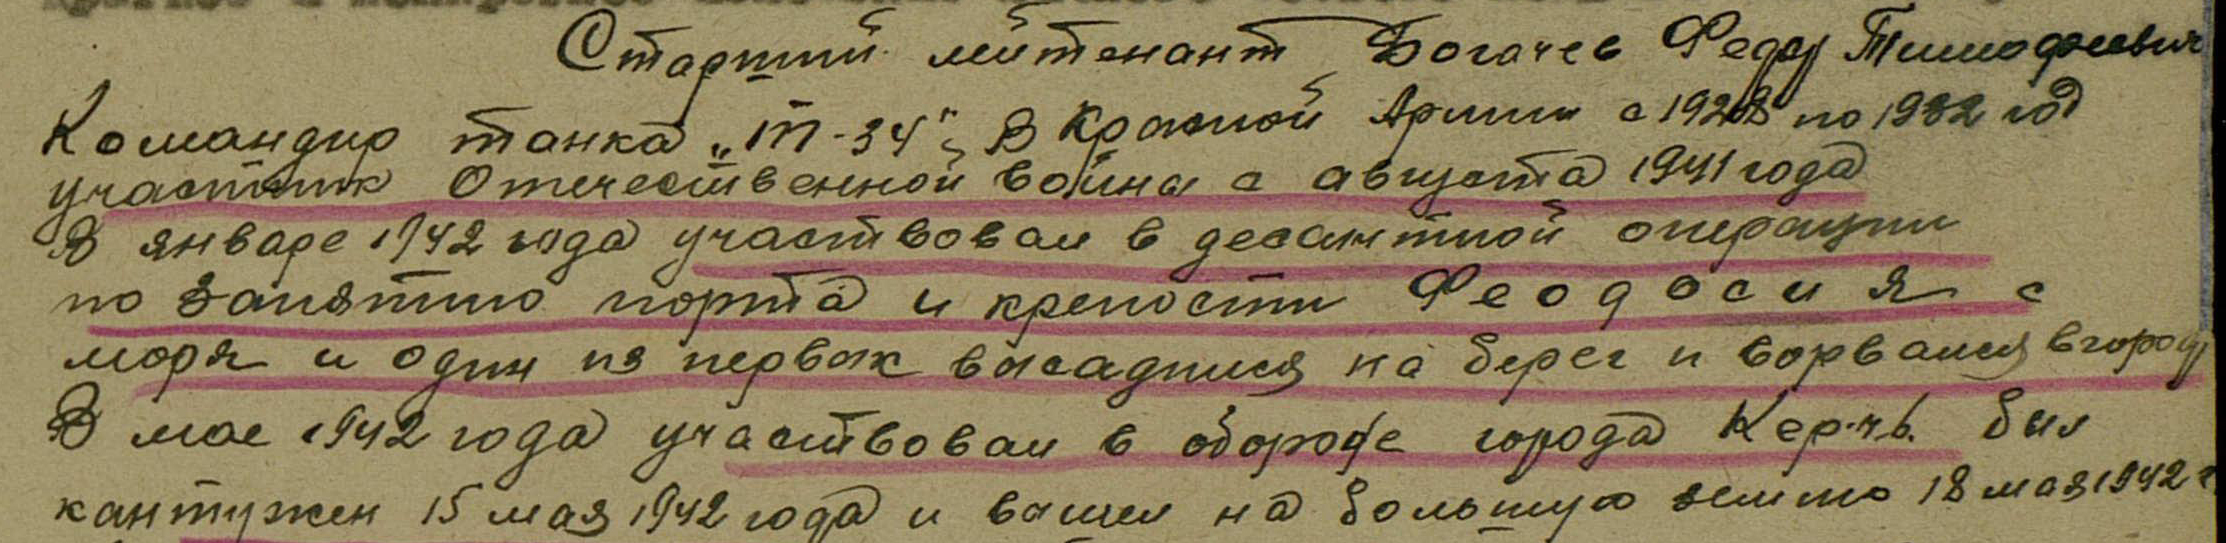 Старший лейтенант Богачев Федор Тимофеевич
Командир танка „Т-34", В Красной Армии с 1928 по 1932 год
участник Отечественной война с августа 1941 года
В январе 1942 года участвовал в десантной операции
по занятию порта и крепости Феодосия с
моря и один из первых высадился на берег и ворвался в город
В мае 1942 года участвовал в обороне города Керчь. был
кантужен 15 мая 1942 года и вышел на большую землю 18 мая 1942 г